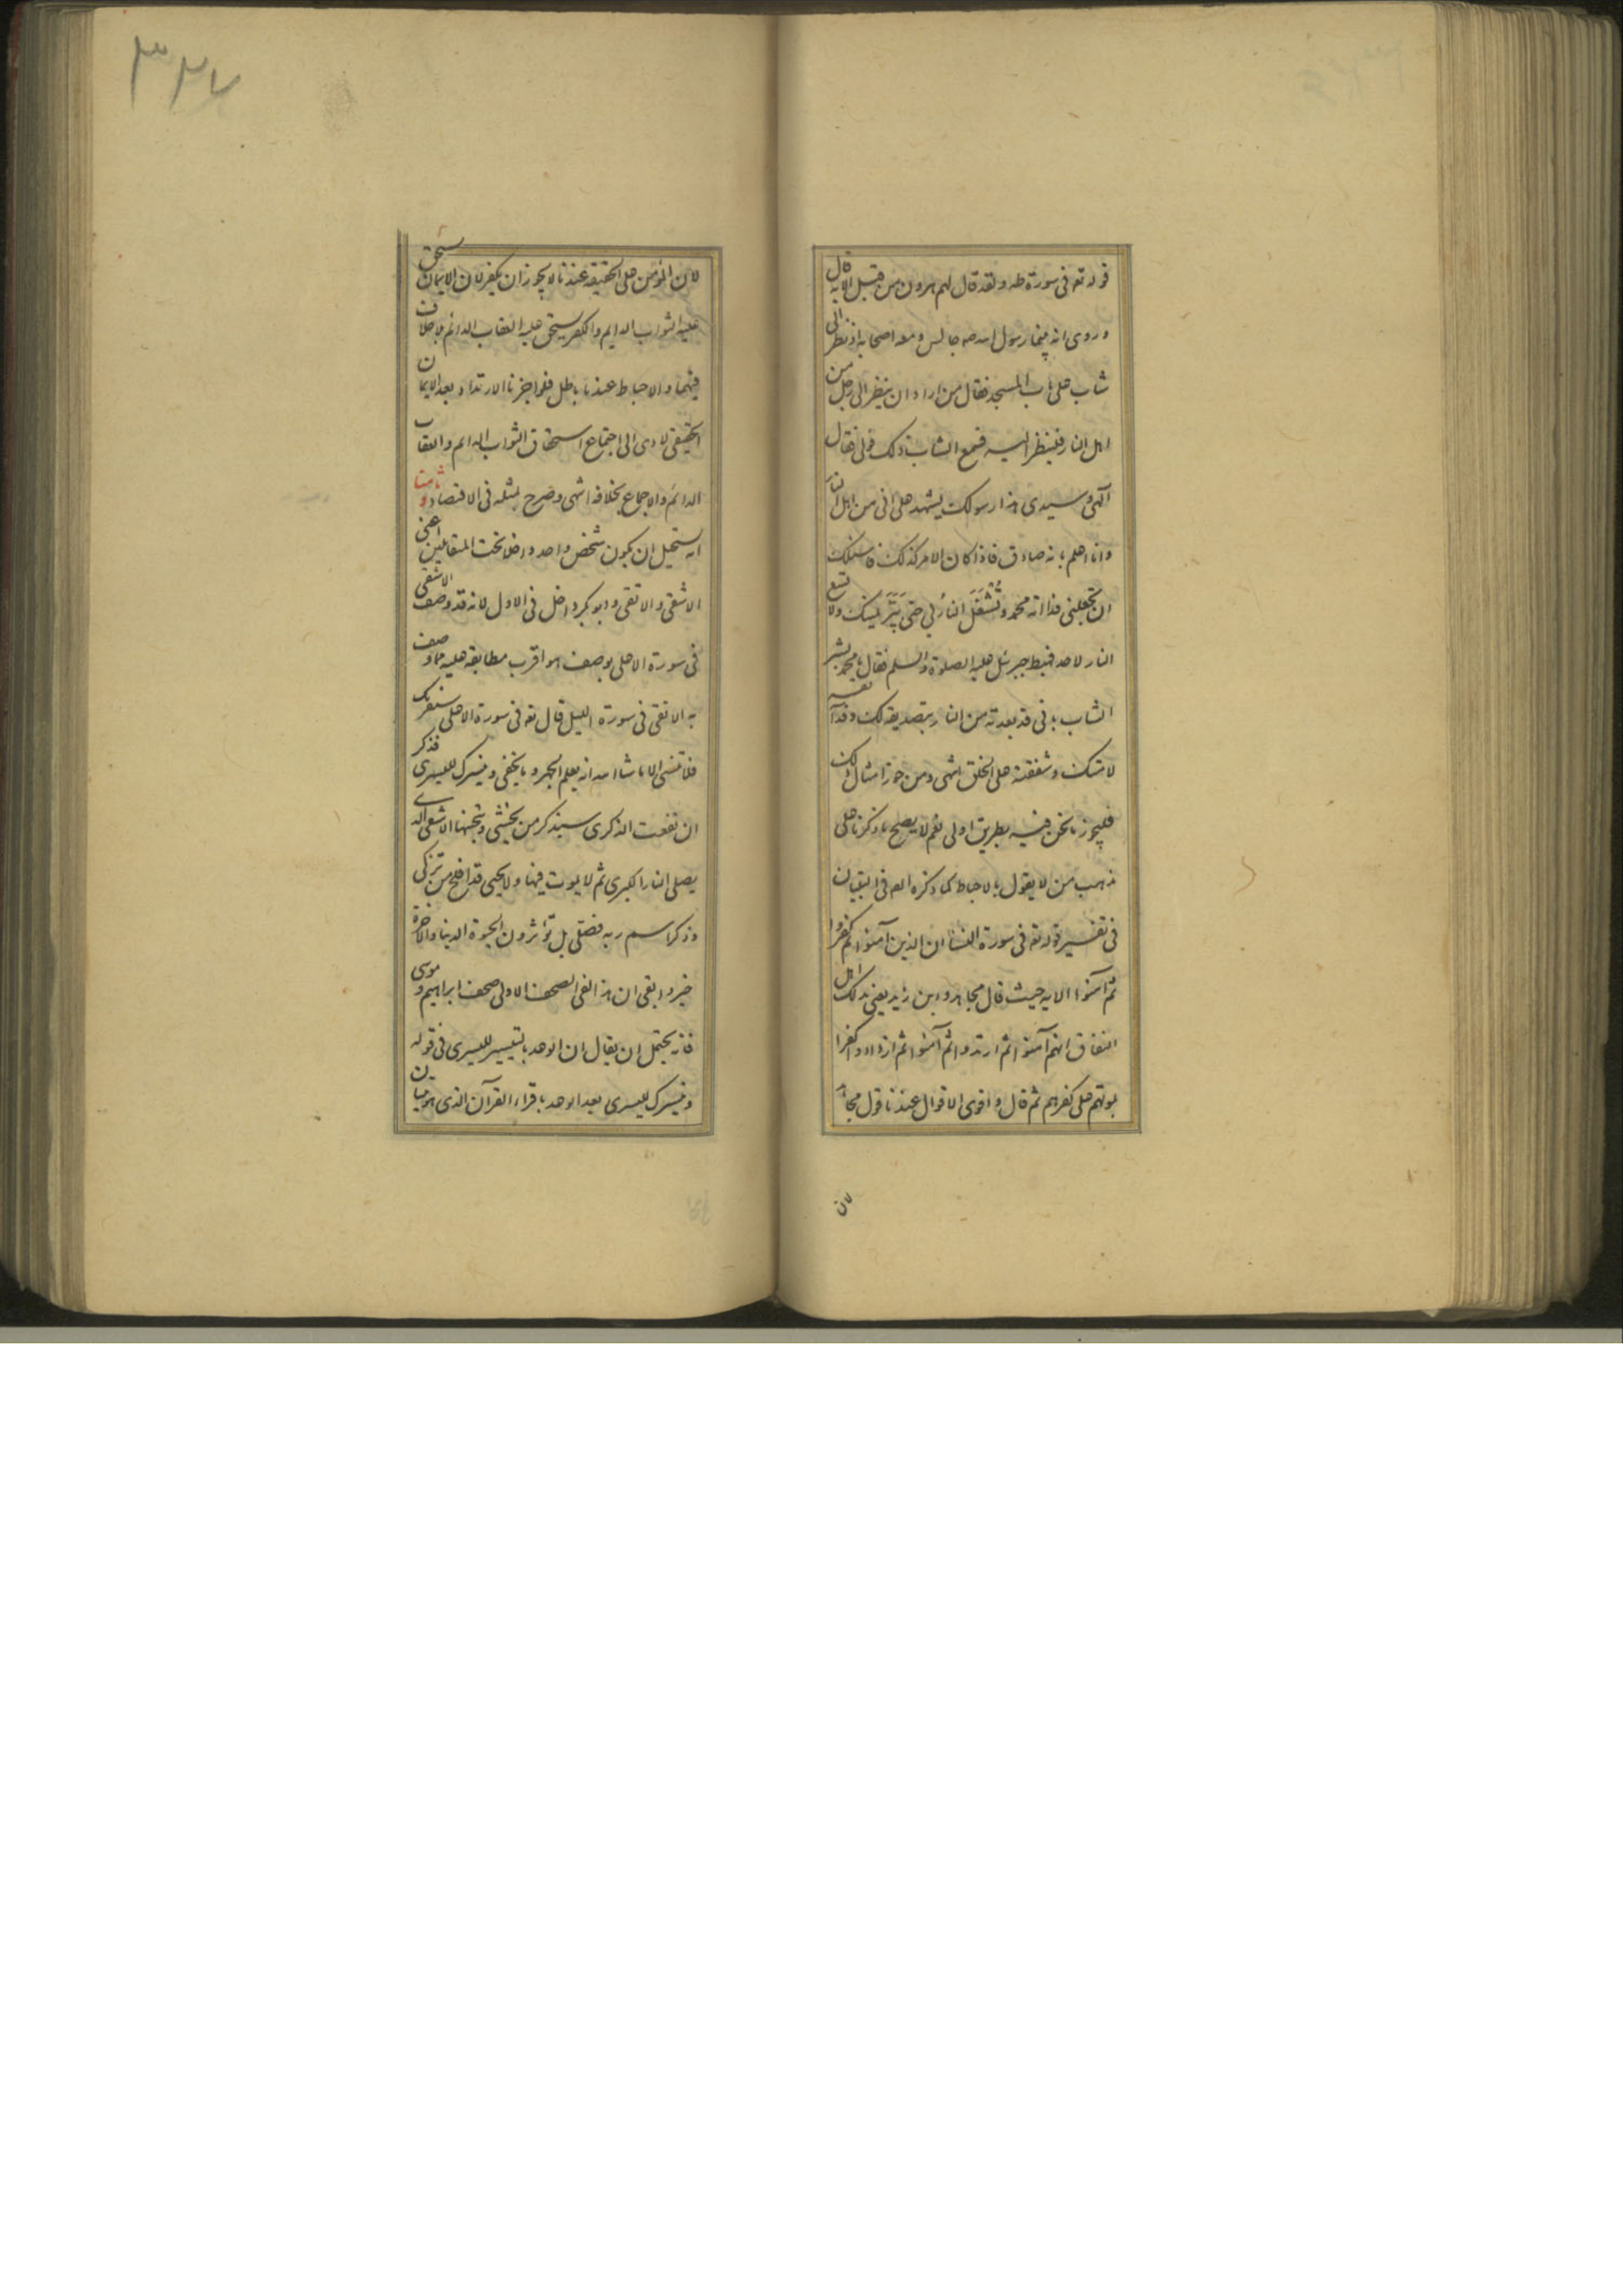 قوله تع فی سورة طه ولقد قال لهم هرون من قبل الایه قال
وروی انه بینما رسول الله صه جالس ومعه اصحابه اذ نظر الی
شاب علی باب المسجد فقال من اراد ان ینظر الی رجل من
اهل النار فلینظر الیه فسمع الشاب ذلک فولی فقال
آلهی وسیدی هذا رسولک یشهد علی انی من اهل النار
وانا اعلم بانه صادق فاذا کان الامر کذلک فاسئلک
ان تجعلنی فدا امة محمد وتُشعَل النار بی حتی یمینک ولا تشعل
النار لاحد فهبط جبرئل علیه الصلوة والسلم فقال یا محمد بشر
الشاب بانی قد بعدته من النار بتصدیقه لک وفدآئه
لامتک وشفقته علی الخلق انتهی ومن جوز امثال ذلک
فلیجوز ما نحن فیه بطریق اولی نعم لا یصلح ما ذکرنا علی
مذهب من لا یقول بالاحباط کما ذکره العم فی التبیان
فی تفسیر قوله تع فی سورة النسا ان الذین آمنوا ثم کفروا
ثم آمنوا الایه حیث قال مجاهد وابن زید یعنی بذلک اهل
النفاق انهم آمنوا ثم ارتدوا ثم آمنوا ثم ازدادوا کفرا
بموتهم علی کفرهم ثم قال واقوی الاقوال عندنا قول مجاهد
لان
۳۴۷
لان المؤمن علی الحقیقه عندنا لا یجوز ان یکفر لان الایمان یستحق
علیه الثواب الدایم والکفر یستحق علیه العقاب الدائم بلا خلاف
فیهما والاحباط عندنا باطل فلو اجزنا الارتداد بعد الایمان
الحقیقی لادی الی اجتماع استحقاق الثواب الدائم والعقاب
الدائم والاجماع بخلافه انتهی وصرح بمثله فی الاقتصاد وثامنا
انه یستحیل ان یکون شخص واحد داخلا تحت المتقابلین اعنی
الاشقی والاتقی وابو بکر داخل فی الاول لانه قد وصف الاشقی
فی سورة الاعلی بوصف هو اقرب مطابقه علیه مما وصف
به الاتقی فی سورة اللیل قال تع فی سورة الاعلی سنقرئک
فلا تنسی الا ما شا الله انه یعلم الجهر وما یخفی ونیسرک للیسری فذکر
ان نفعت الذکری سیذکر من یخشی ویتجنبها الاشقی الذی
یصلی النار الکبری ثم لا یموت فیها ولا یحیی قد افلح من تزکی
وذکر اسم ربه فصلی بل تؤثرون الحیوة الدنیا والاخرة
خیر وابقی ان هذا لفی الصحف الاولی صحف ابراهیم وموسی
فانه یحتمل ان یقال ان الوعد بالتیسیر للیسری فی قوله
ونیسرک للیسری بعد الوعد باقراء القرآن الذی هو بیان